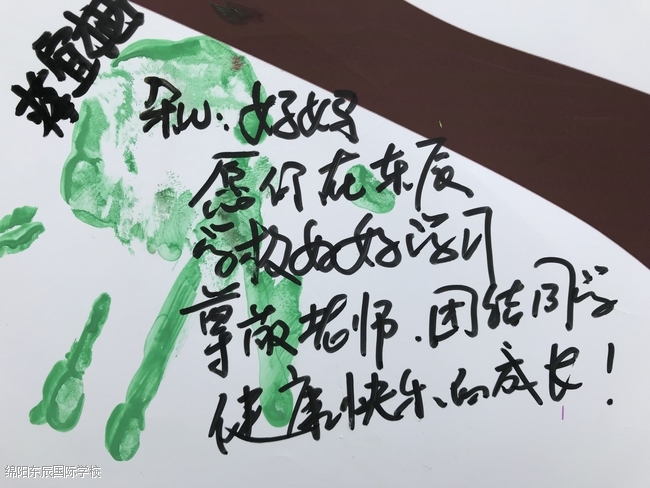 朵以、好好
愿你在东辰
学校好好学习
尊敬老师、团结同学
健康快乐的成长！
绵阳东辰国际学校